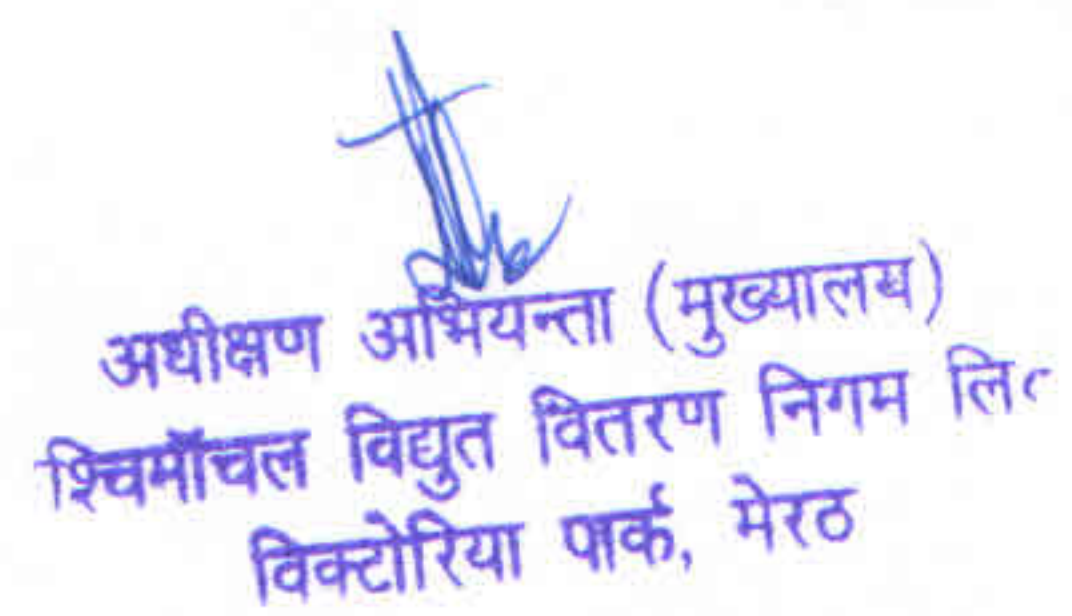 अधीक्षण अभियन्ता (मुख्यालय)
श्चिमॉचल विद्युत वितरण निगम लि०
विक्टोरिया पार्क, मेरठ